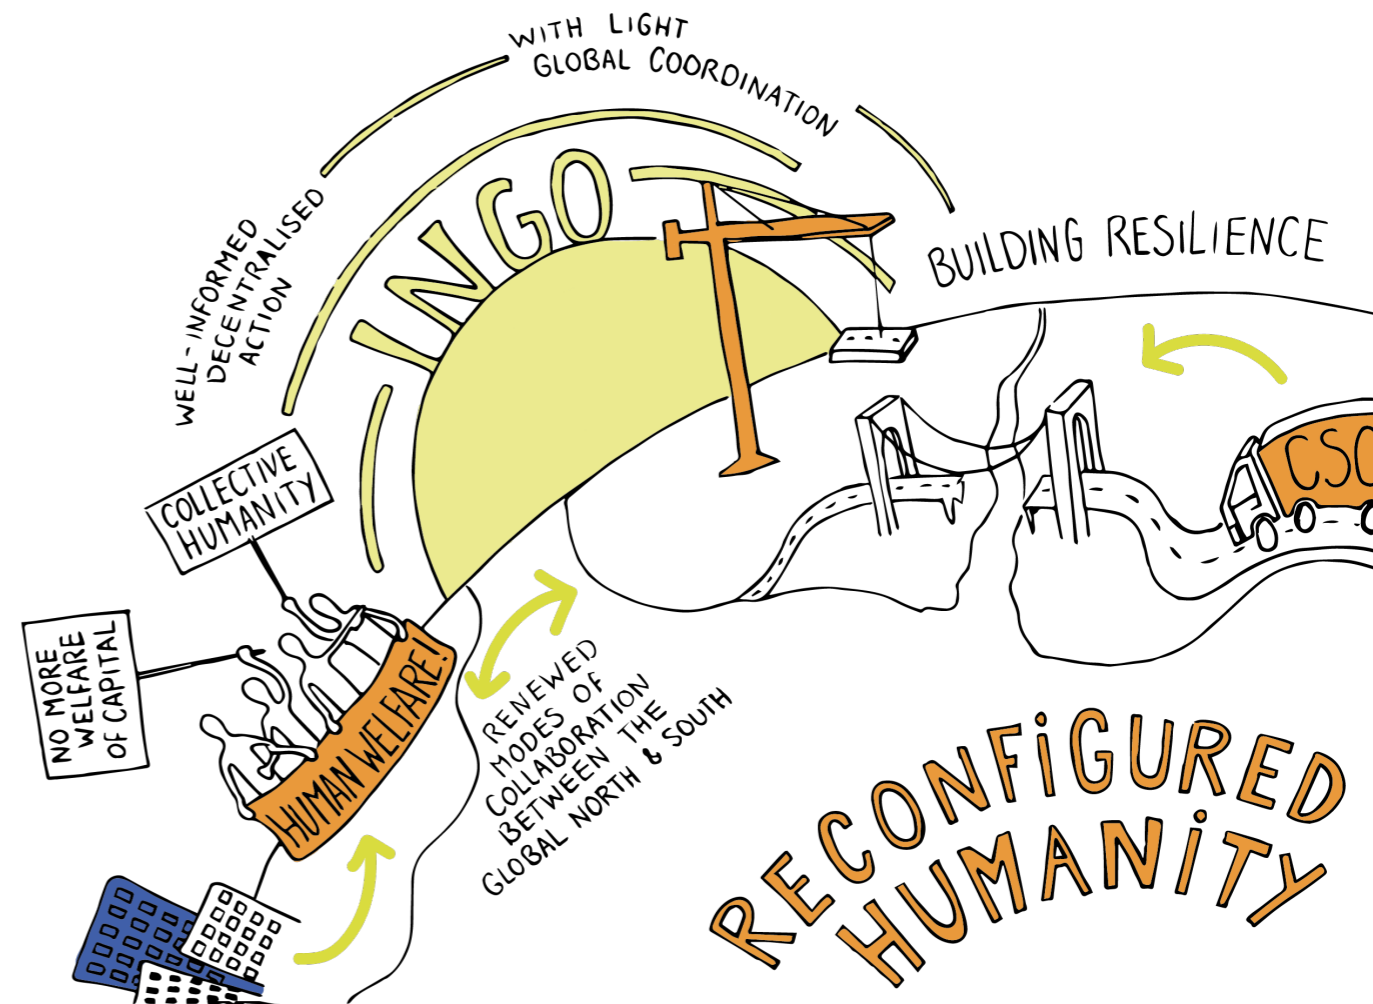 WITH LIGHT
GLOBAL COORDINATION
WELL-INFORMED
DECENTRALISED
ACTION
INGO
BUILDING RESILIENCE
CSO
COLLECTIVE
HUMANITY
NO MORE
WELFARE
OF CAPITAL
HUMAN WELFARE!
RENEWED
MODES OF
COLLABORATION
BETWEEN THE
GLOBAL NORTH & SOUTH
RECONFiGURED
HUMANiTY